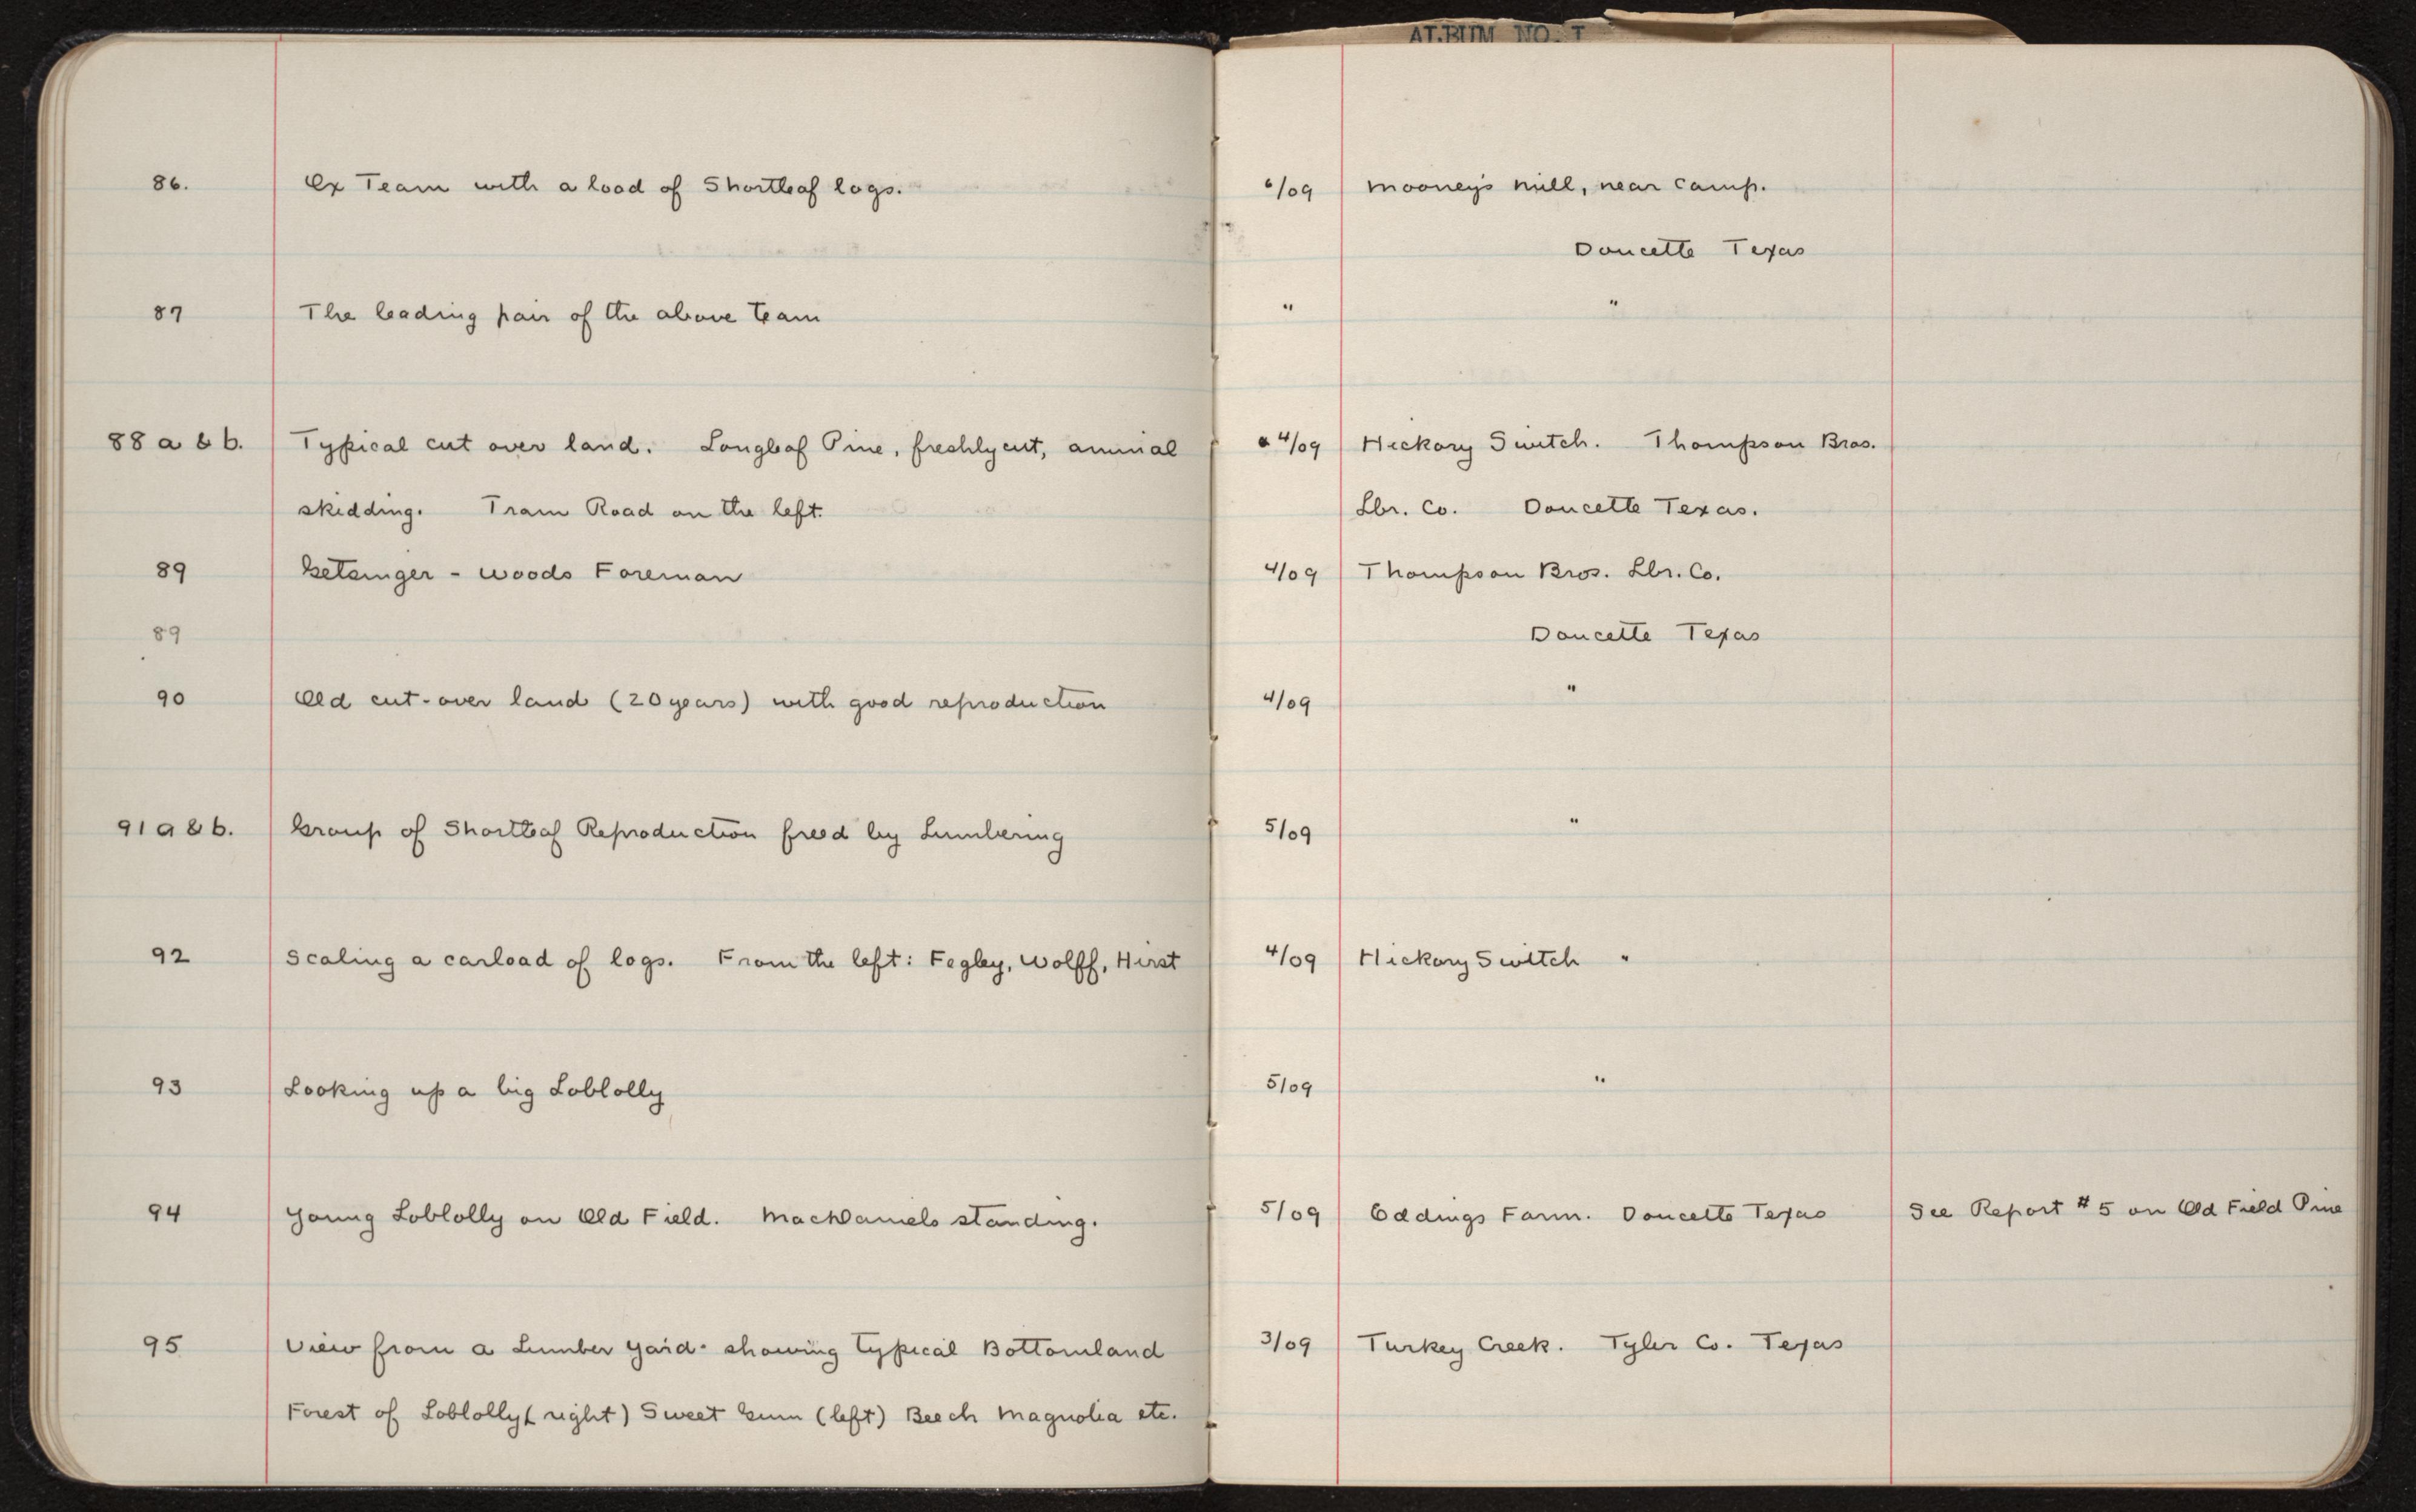 ALBUM NO. I
86. Ox Team with a load of Shortleaf logs. 6/09 Mooney's mill, near camp.
Doucette Texas
87 The leading pair of the above Team " "
88 a & b. Typical cut over land. Longleaf Pine, freshly cut, animal 4/09 Hickory Switch. Thompson Bros.
skidding. Tram Road on the left. Lbr. Co. Doucette Texas.
89 Getsinger - Woods Foreman 4/09 Thompson Bros. Lbr. Co.
89 Doucette Texas
90 Old cut-over land (20 years) with good reproduction 4/09 "
91 a & b. Group of Shortleaf Reproduction freed by Lumbering 5/09 "
92 Scaling a carload of logs. From the left: Fegley, Wolff, Hirst 4/09 Hickory Switch "
93 Looking up a big Loblolly 5/09 "
94 Young Loblolly on Old Field. MacDaniels standing. 5/09 Eddings Farm. Doucette Texas See Report #5 on Old Field Pine
95 View from a Lumber Yard- showing typical Bottomland 3/09 Turkey Creek. Tyler Co. Texas
Forest of Loblolly (right) Sweet Gum (left) Beech Magnolia etc.